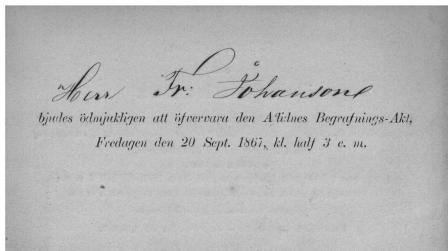 Herr Fr: Johansone
bjudes ödmjukligen att öfvervara den Aflidnes Begrafnings-Akt,
Fredagen den 20 Sept. 1867, kl. half 3 e. m.